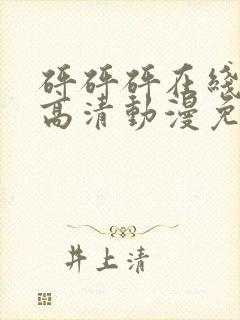 砰砰砰在綫
高清動漫免
井上清